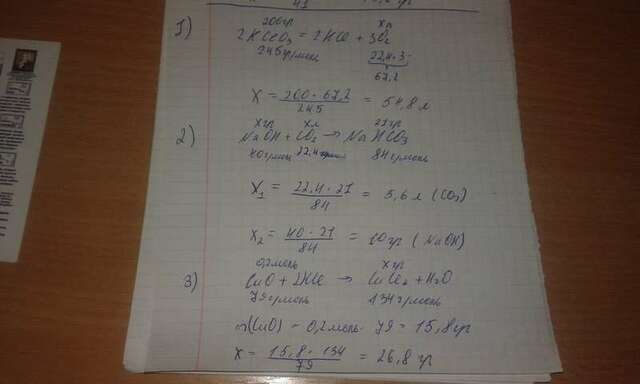 41
1)
200гр хл
2KClO3 = 2KCl + 3O2
245гр/моль 22,4·3
67,2
X = 200·67,2 / 245 = 54,8 л
2)
xгр xл 21гр
NaOH + CO2 → NaHCO3
40гр/моль 22,4 84гр/моль
X1 = 22,4·21 / 84 = 5,6 л (CO2)
X2 = 40·21 / 84 = 10гр (NaOH)
3)
0,2моль xгр
CuO + 2HCl → CuCl2 + H2O
79гр/моль 134гр/моль
m(CuO) = 0,2моль·79 = 15,8гр
X = 15,8·134 / 79 = 26,8 гр